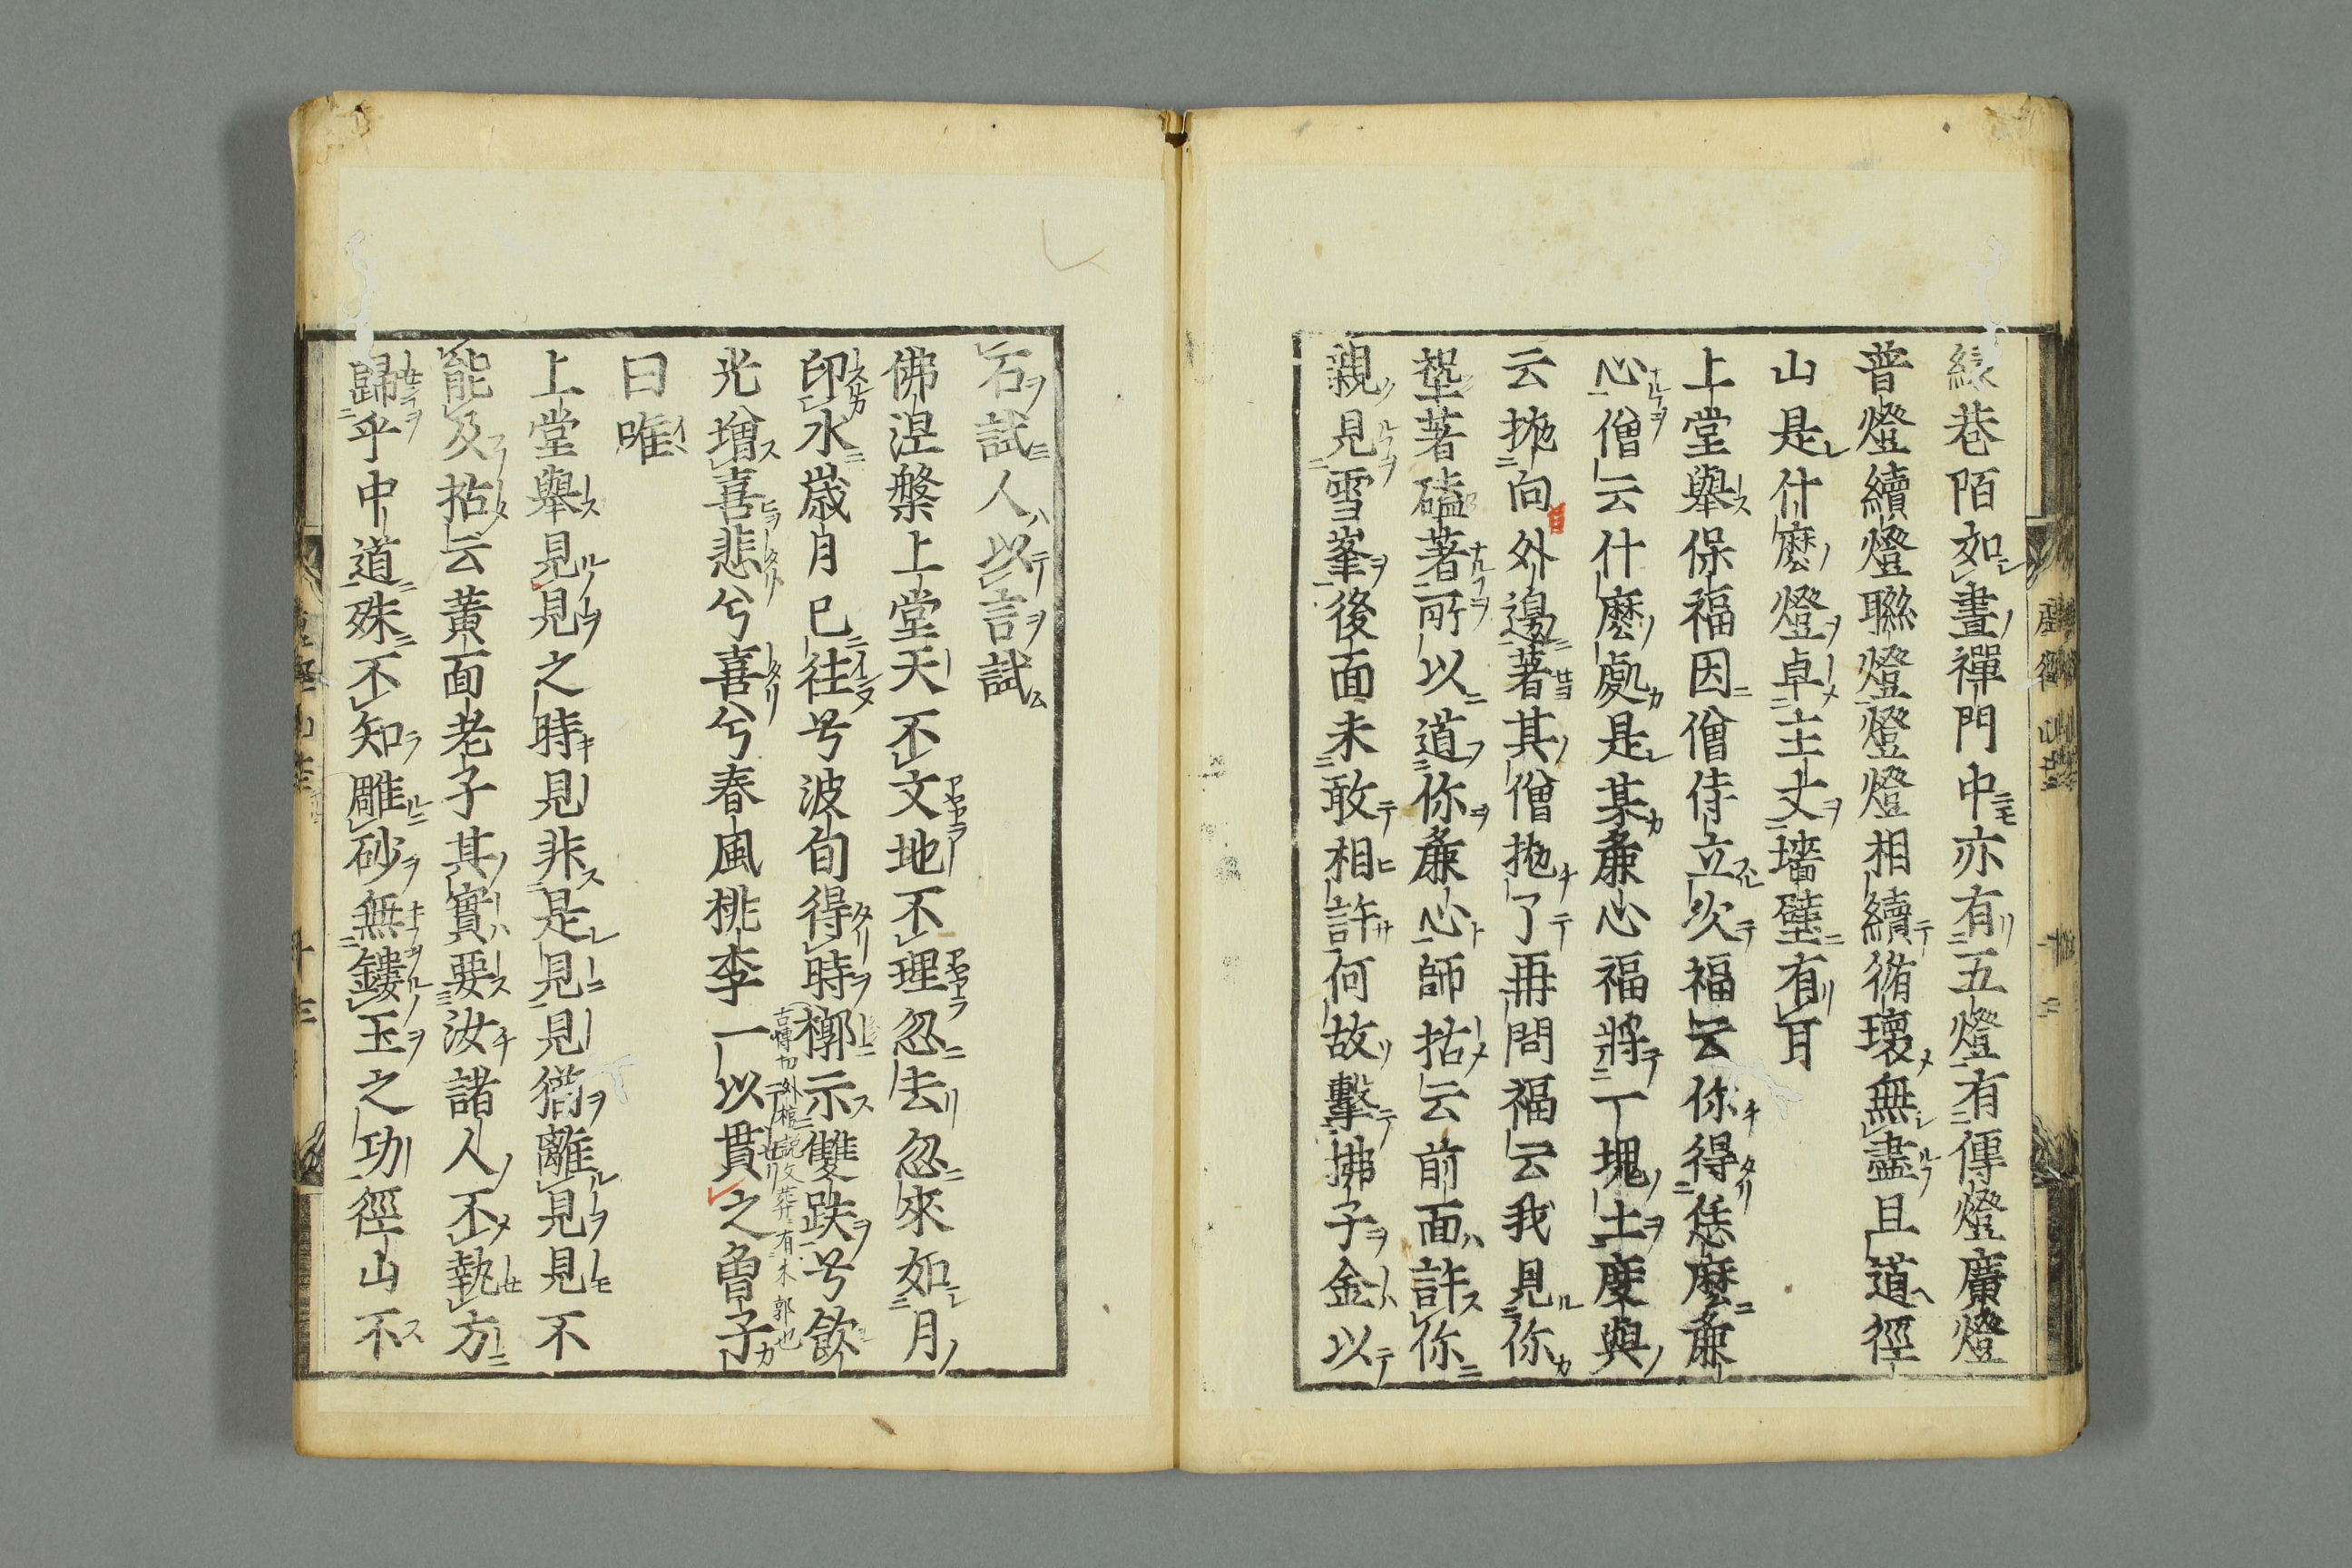 緑巷陌如晝禪門中亦有五燈有傳燈廣燈
普燈續燈聮燈燈燈相續脩環無盡且道徑
山是什麽燈卓主丈墻壁有耳
上堂舉保福因僧侍立次福云你得恁麽麁
心僧云什麽處是某麁心福將一塊土度與
云拋向外邊著其僧拋了再問福云我見你
㘞著磕著所以道你麁心師拈云前面許你
親見雪峯後面未敢相許何故擊拂子金以
石試人以言試
佛涅槃上堂天不文地不理忽去忽來如月
印水歳月已往兮波旬得時槨示雙趺兮飲
光増喜悲兮喜兮春風桃李一以貫之魯子
古慱切外棺説文葬有木郭也
曰唯
上堂舉見見之時見非是見見猶離見見不
能及拈云黄面老子其實要汝諸人不執方
歸乎中道殊不知雕砂無鏤玉之功徑山不